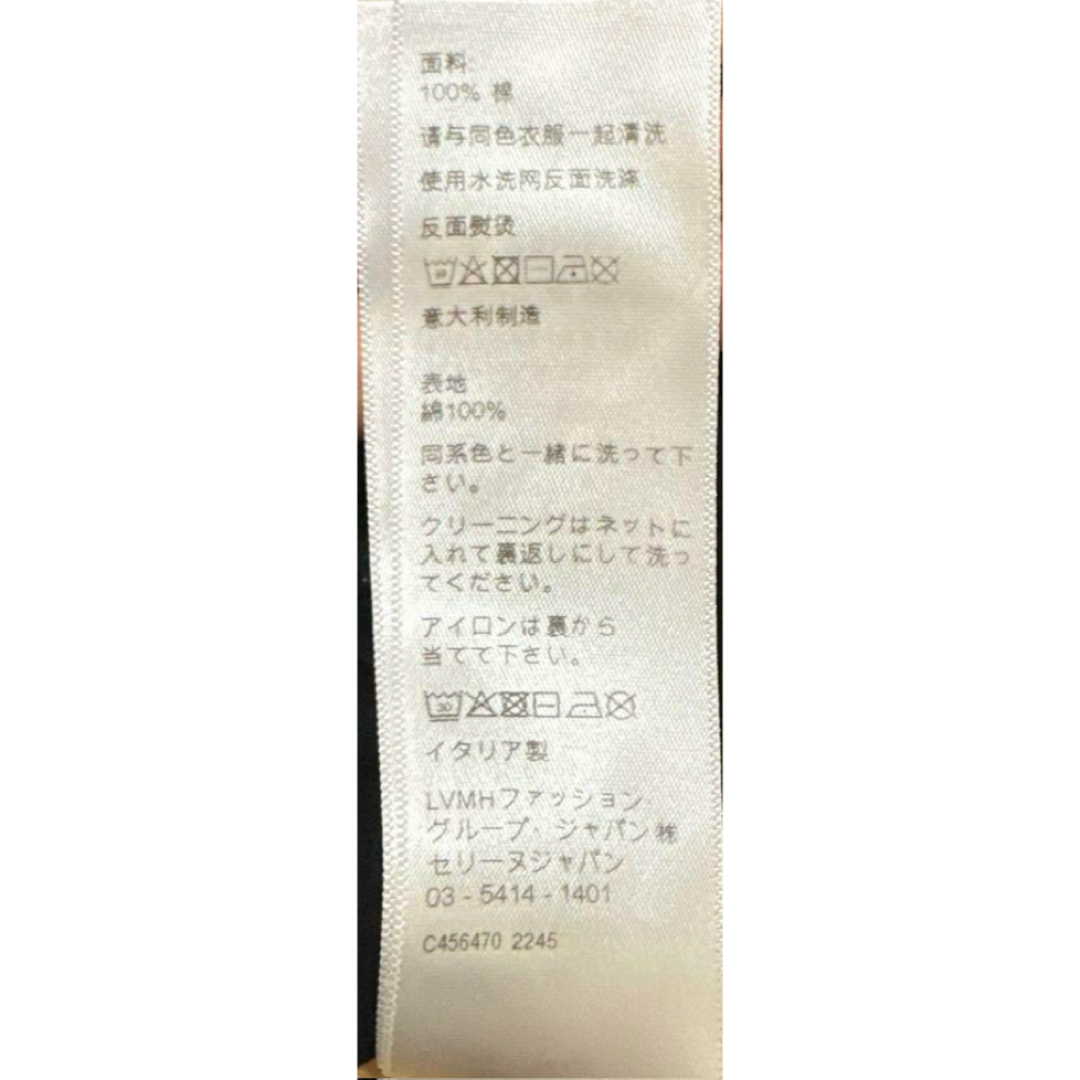 面料:
100% 棉
请与同色衣服一起清洗
使用水洗网反面洗涤
反面熨烫
意大利制造
表地
綿100%
同系色と一緒に洗って下
さい。
クリーニングはネットに
入れて裏返しにして洗っ
てください。
アイロンは裏から
当てて下さい。
30
イタリア製
LVMHファッション・
グループ・ジャパン株
セリーヌジャパン
03 - 5414 - 1401
C456470 2245